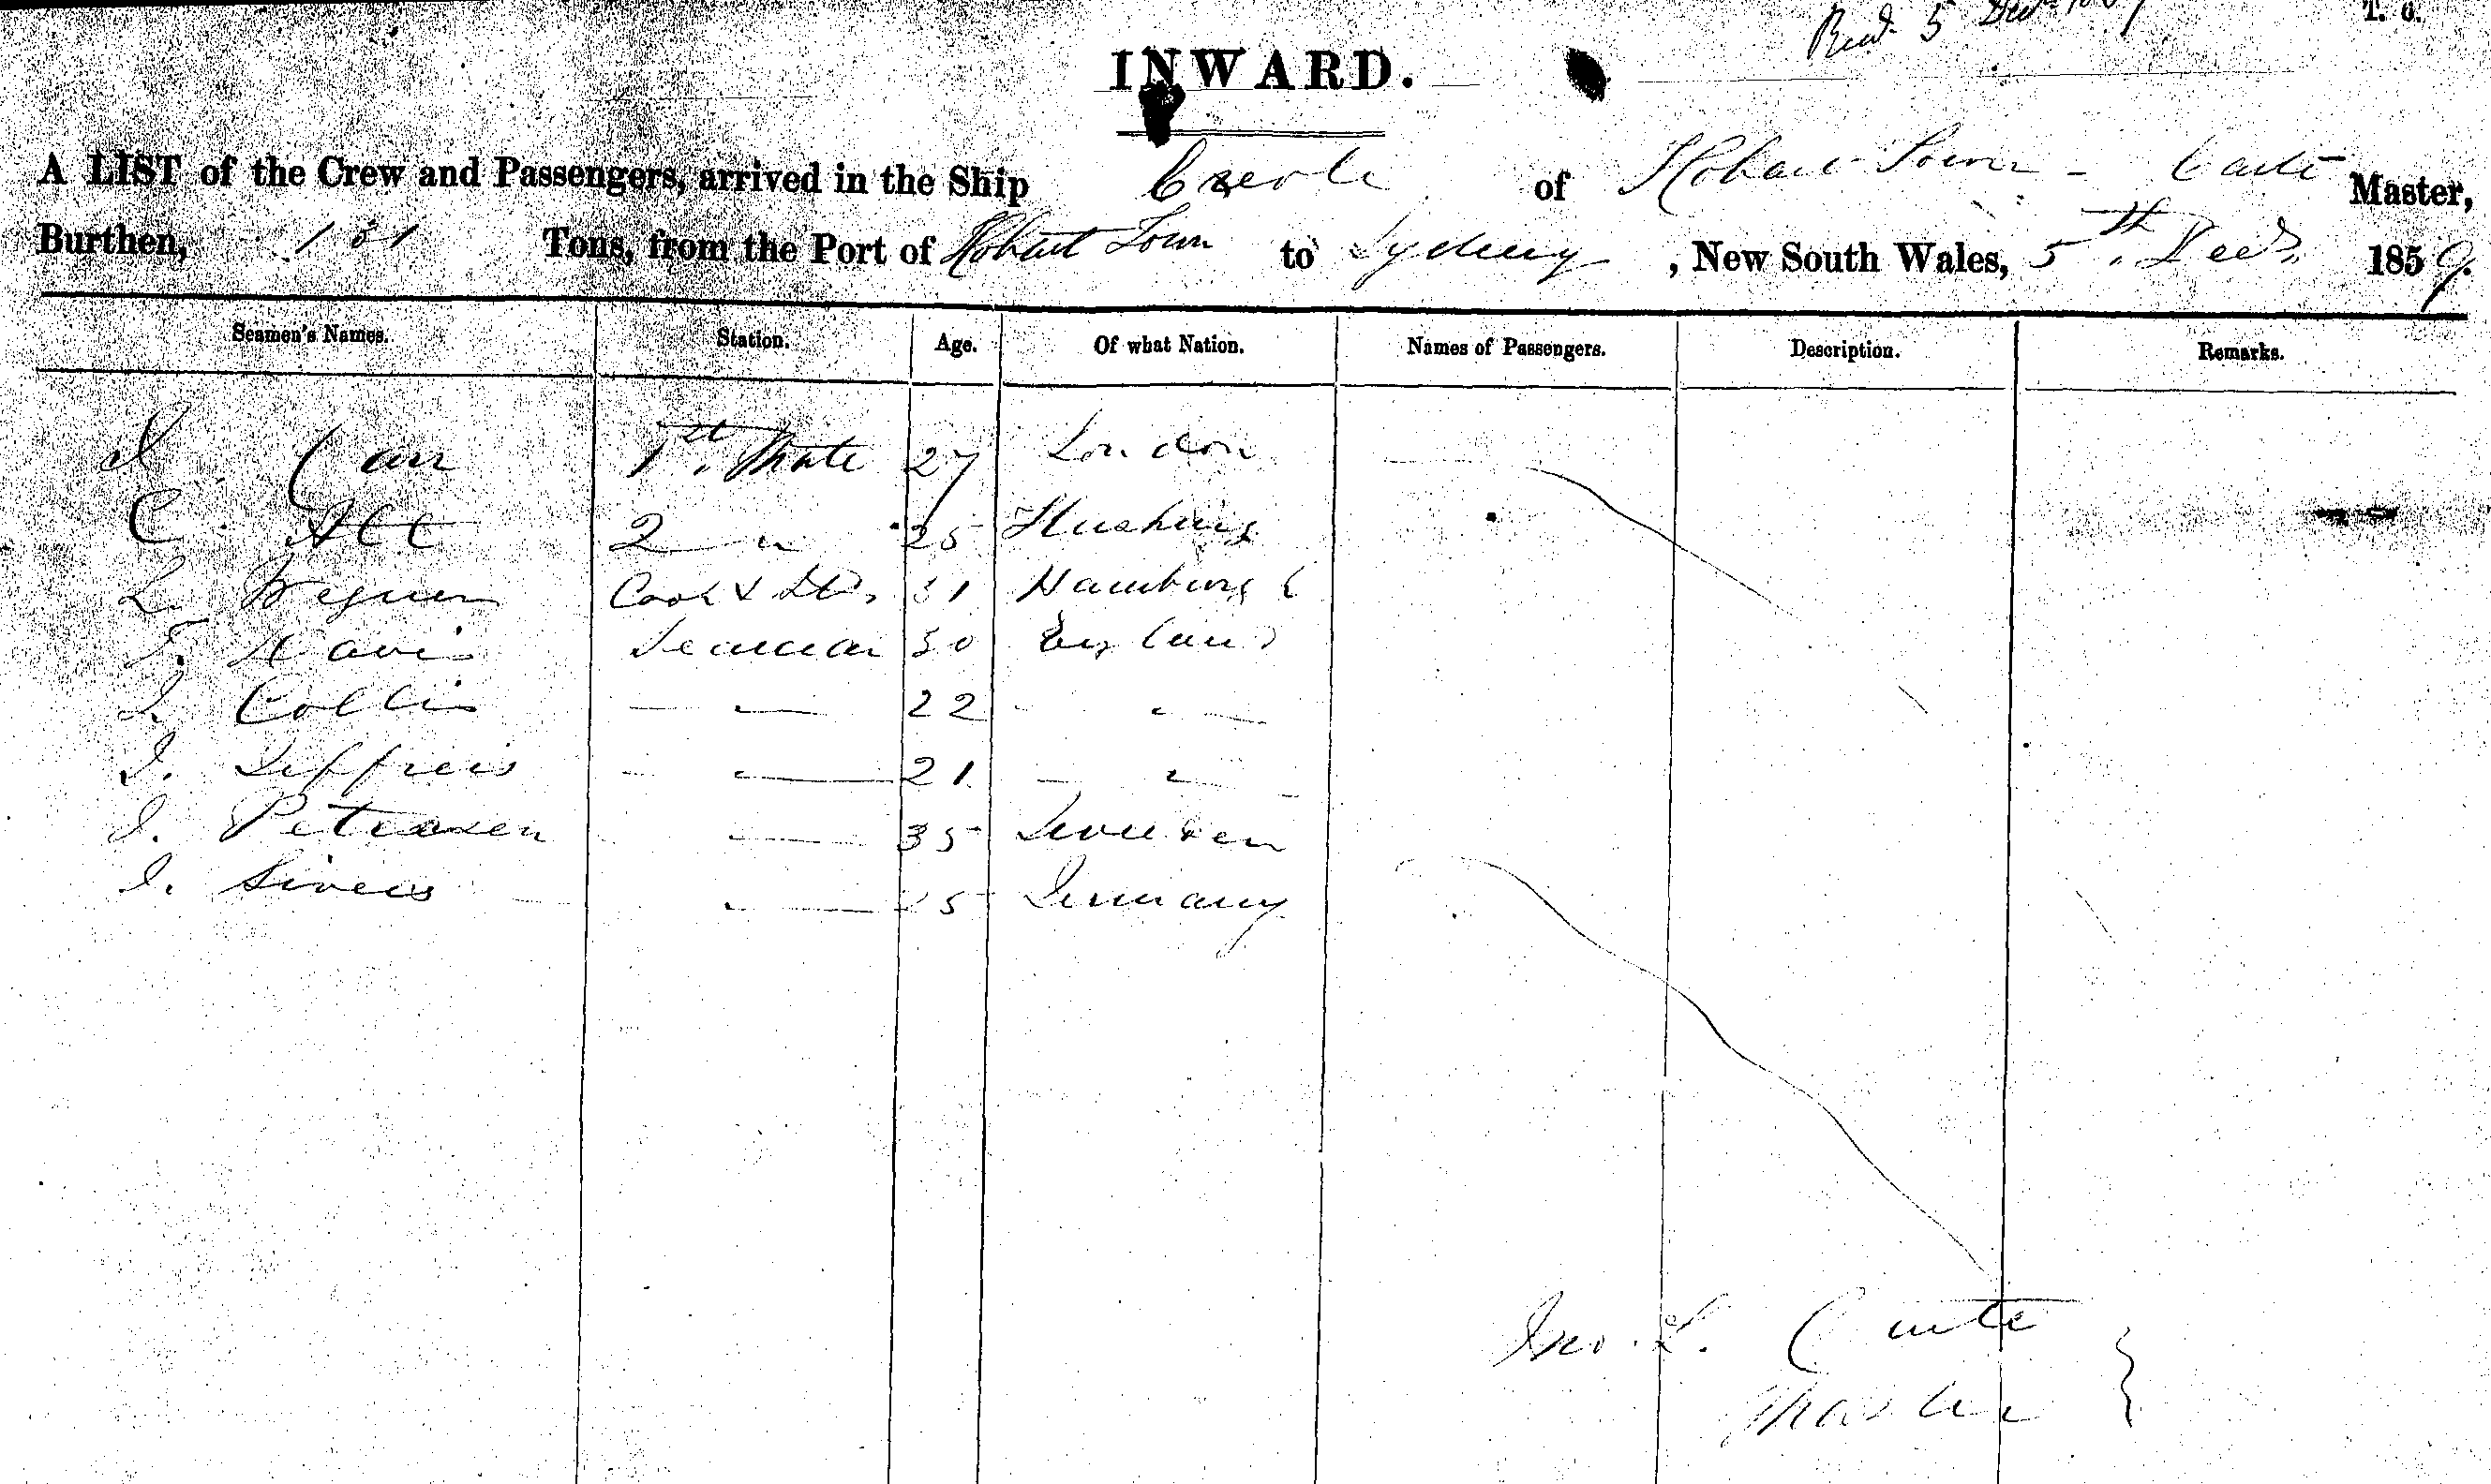 Recd. 5 Decr
T. O.
INWARD.
A LIST of the Crew and Passengers, arrived in the Ship Creole of Hobart Town - Master,
Burthen, 131 Tons, from the Port of Hobart Town to Sydney, New South Wales, 5th. Decr. 1859.
Seamen's Names. Station. Age. Of what Nation. Names of Passengers. Description. Remarks.
J. Carr 1st. Mate 27 London
C. 2 " 25
L. Wegner Cook & Std. 31 Hamburg
T. Davis Seaman 30 England
J. Collis — " — 22 — " —
J. Jeffreis — " — 21 — " —
J. Petersen " — 35
J. Sivers " — 25 Germany
Jno. S.
Master